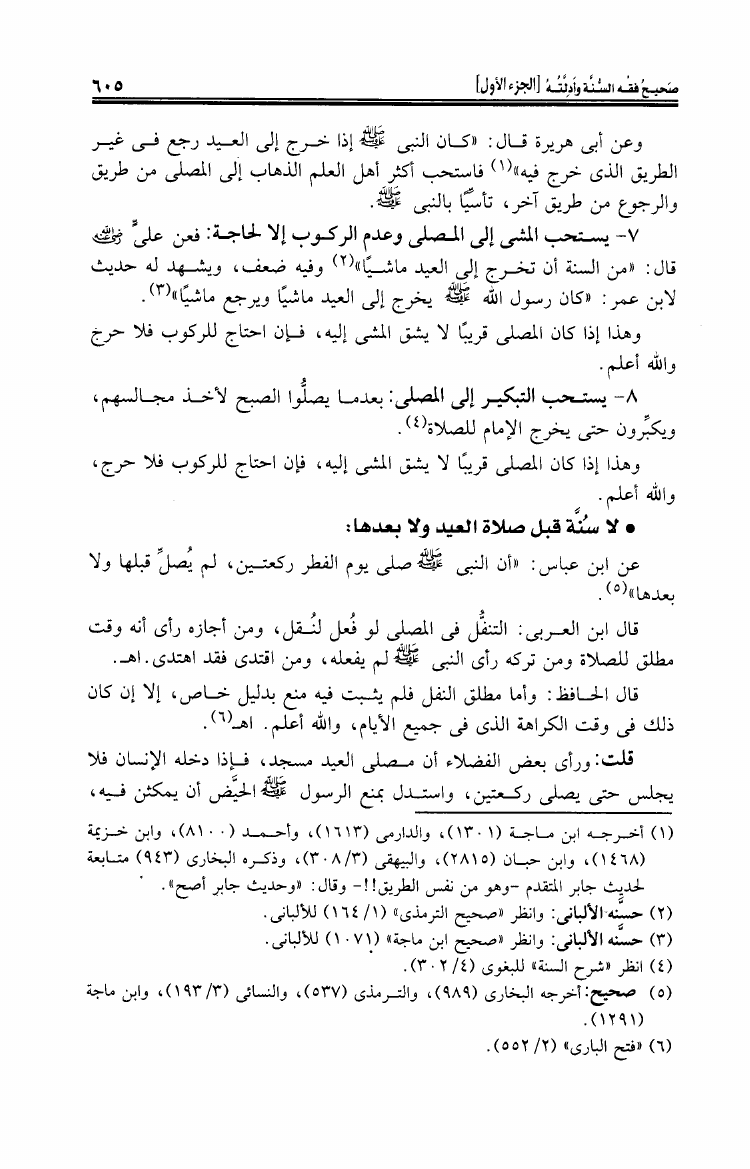 صَحيحُ فقْه السُّنَّة وَأَدِلَّتُهُ [الجزء الأول] ٦٠٥
وعن أبى هريرة قـال: «كـان النبى ﷺ إذا خـرج إلى العـيد رجع فـى غيـر
الطريق الذى خرج فيه»(١) فاستحب أكثر أهل العلم الذهاب إلى المصلى من طريق
والرجوع من طريق آخر، تأسيًا بالنبى ﷺ.
٧- يسـتحب المشى إلى المـصلى وعدم الركـوب إلا لحاجـة: فعن علىٍّ رضي الله عنه
قال: «من السنة أن تخـرج إلى العيد ماشـيًا»(٢) وفيه ضعف، ويشـهد له حديث
لابن عمر: «كان رسول الله ﷺ يخرج إلى العيد ماشيًا ويرجع ماشيًا»(٣).
وهذا إذا كان المصلى قريبًا لا يشق المشى إليه، فـإن احتاج للركوب فلا حرج
والله أعلم.
٨- يستـحب التبكيـر إلى المصلى: بعدمـا يصلُّوا الصبح لأخـذ مجـالسهم،
ويكبِّرون حتى يخرج الإمام للصلاة(٤).
وهذا إذا كان المصلى قريبًا لا يشق المشى إليه، فإن احتاج للركوب فلا حرج،
والله أعلم.
• لا سُنَّة قبل صلاة العيد ولا بعدها:
عن ابن عباس: «أن النبى ﷺ صلى يوم الفطر ركعتـين، لم يُصلِّ قبلها ولا
بعدها»(٥).
قال ابن العـربى: التنفُّل فى المصلى لو فُعل لنُـقل، ومن أجازه رأى أنه وقت
مطلق للصلاة ومن تركه رأى النبى ﷺ لم يفعله، ومن اقتدى فقد اهتدى. اهـ.
قال الحـافظ: وأما مطلق النفل فلم يثـبت فيه منع بدليل خـاص، إلا إن كان
ذلك فى وقت الكراهة الذى فى جميع الأيام، والله أعلم. اهـ(٦).
قلت: ورأى بعض الفضلاء أن مـصلى العيد مسجد، فـإذا دخله الإنسان فلا
يجلس حتى يصلى ركـعتين، واسـتدل بمنع الرسول ﷺ الحيَّض أن يمكثن فـيه،
(١) أخـرجـه ابن مـاجـة (١٣٠١)، والدارمى (١٦١٣)، وأحـمـد (٨١٠٠)، وابن خـزيمة
(١٤٦٨)، وابن حبـان (٢٨١٥)، والبيهقى (٣٠٨/٣)، وذكـره البخارى (٩٤٣) متـابعة
لحديث جابر المتقدم -وهو من نفس الطريق!!- وقال: «وحديث جابر أصح».
(٢) حسنَّه الألبانى: وانظر «صحيح الترمذى» (١٦٤/١) للألبانى.
(٣) حسنَّه الألبانى: وانظر «صحيح ابن ماجة» (١٠٧١) للألبانى.
(٤) انظر «شرح السنة» للبغوى (٣٠٢/٤).
(٥) صحيح: أخرجه البخارى (٩٨٩)، والتـرمذى (٥٣٧)، والنسائى (١٩٣/٣)، وابن ماجة
(١٢٩١).
(٦) «فتح البارى» (٥٥٢/٢).